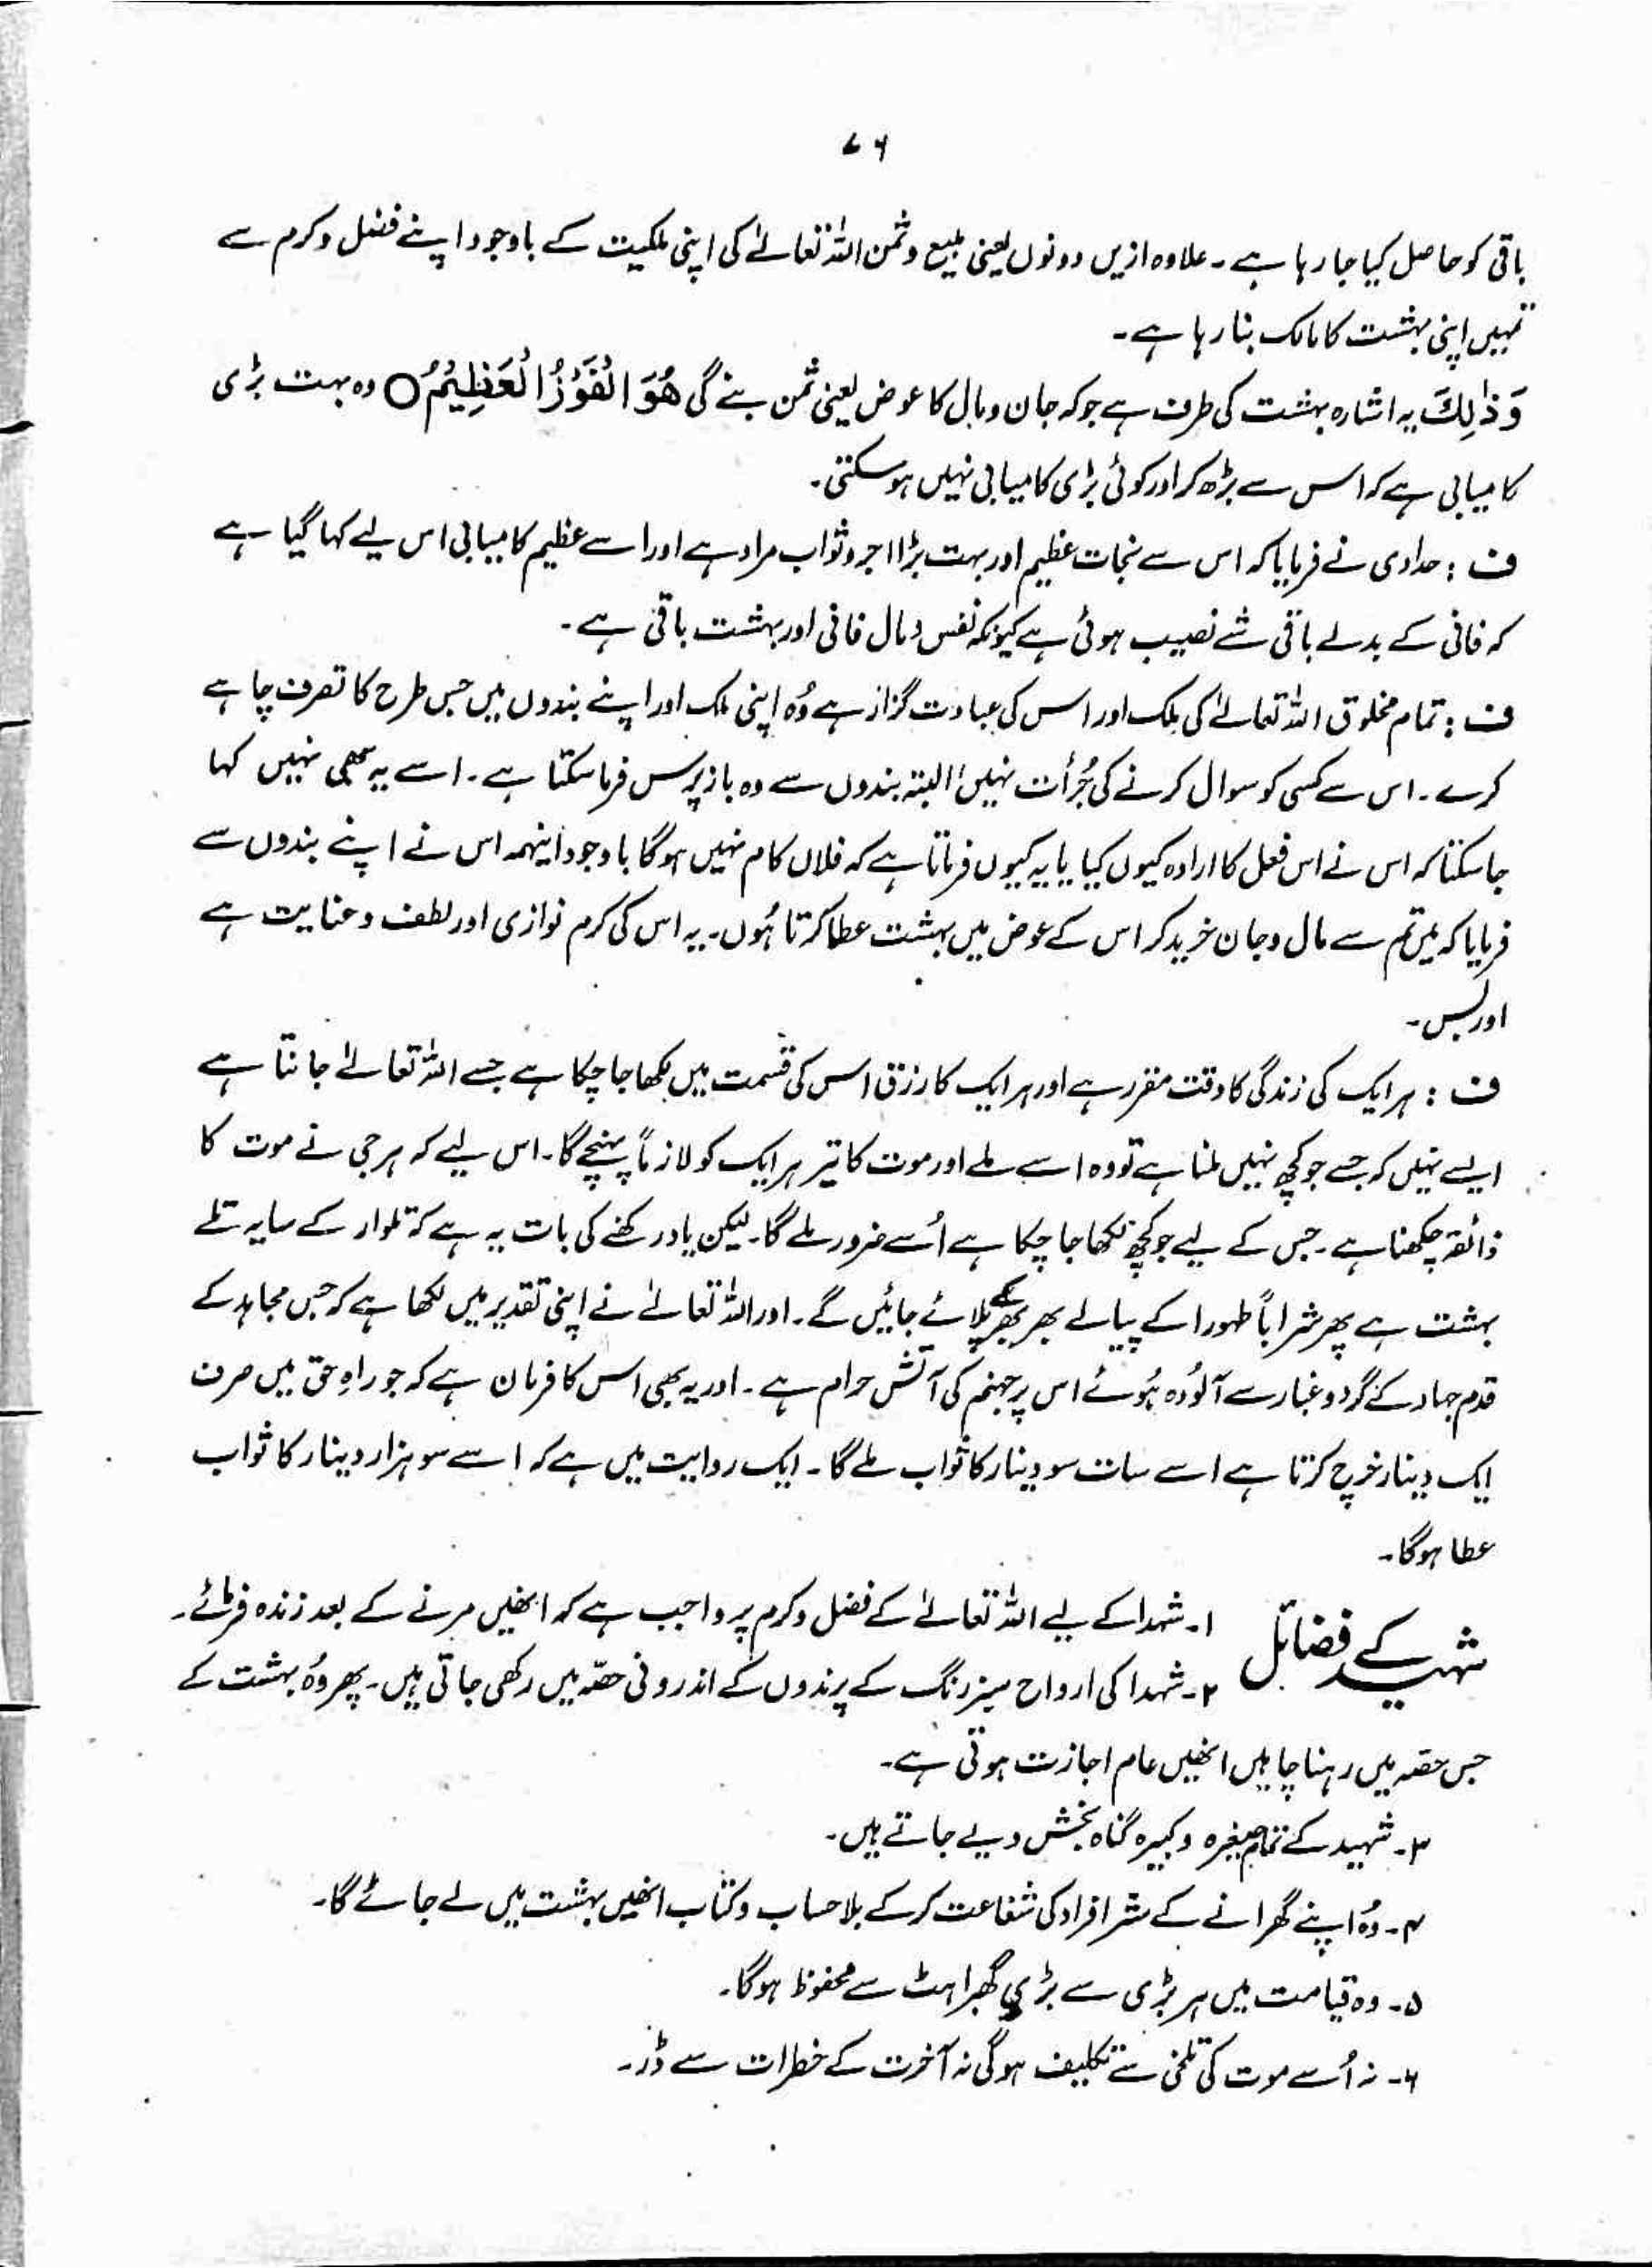 ۷۶
باقی کو حاصل کیا جا رہا ہے۔ علاوہ ازیں دونوں یعنی مبیع و ثمن اللہ تعالیٰ کی اپنی ملکیت کے باوجود اپنے فضل و کرم سے
تمہیں اپنی بہشت کا مالک بنا رہا ہے۔
وَذٰلِكَ یہ اشارہ بہشت کی طرف ہے جو کہ جان و مال کا عوض یعنی ثمن بنے گی هُوَ الْفَوْزُ الْعَظِيْمُ ○ وہ بہت بڑی
کامیابی ہے کہ اس سے بڑھ کر اور کوئی بڑی کامیابی نہیں ہو سکتی۔
ف : حدادی نے فرمایا کہ اس سے نجات عظیم اور بہت بڑا اجر و ثواب مراد ہے اور اسے عظیم کامیابی اس لیے کہا گیا ہے
کہ فانی کے بدلے باقی شے نصیب ہوئی ہے کیونکہ نفس و مال فانی اور بہشت باقی ہے۔
ف : تمام مخلوق اللہ تعالیٰ کی ملک اور اس کی عبادت گزار ہے وُہ اپنی ملک اور اپنے بندوں میں جس طرح کا تصرف چاہے
کرے۔ اس سے کسی کو سوال کرنے کی جُرأت نہیں، البتہ بندوں سے وہ باز پرس فرما سکتا ہے۔ اسے یہ بھی نہیں کہا
جا سکتا کہ اس نے اس فعل کا ارادہ کیوں کیا یا یہ کیوں فرماتا ہے کہ فلاں کام نہیں ہو گا باوجود اینہمہ اس نے اپنے بندوں سے
فرمایا کہ میں تم سے مال و جان خرید کر اس کے عوض میں بہشت عطا کرتا ہُوں۔ یہ اس کی کرم نوازی اور لطف و عنایت ہے
اور بس۔
ف : ہر ایک کی زندگی کا وقت مقرر ہے اور ہر ایک کا رزق اس کی قسمت میں لکھا جا چکا ہے جسے اللہ تعالیٰ جانتا ہے
ایسے نہیں کہ جسے جو کچھ نہیں ملنا ہے تو وہ اسے ملے اور موت کا تیر ہر ایک کو لازماً پہنچے گا۔ اس لیے کہ ہر جی نے موت کا
ذائقہ چکھنا ہے۔ جس کے لیے جو کچھ لکھا جا چکا ہے اُسے ضرور ملے گا۔ لیکن یاد رکھنے کی بات یہ ہے کہ تلوار کے سایہ تلے
بہشت ہے پھر شراباً طہورا کے پیالے بھر بھر کے پلائے جائیں گے۔ اور اللہ تعالیٰ نے اپنی تقدیر میں لکھا ہے کہ جس مجاہد کے
قدم جہاد کے گرد و غبار سے آلُودہ ہُوئے اس پر جہنم کی آتش حرام ہے۔ اور یہ بھی اس کا فرمان ہے کہ جو راہِ حق میں صرف
ایک دینار خرچ کرتا ہے اسے سات سو دینار کا ثواب ملے گا۔ ایک روایت میں ہے کہ اسے سو ہزار دینار کا ثواب
عطا ہوگا۔
شہید کے فضائل
۱۔ شہدا کے لیے اللہ تعالیٰ کے فضل و کرم پر واجب ہے کہ انھیں مرنے کے بعد زندہ فرمائے۔
۲۔ شہدا کی ارواح سبز رنگ کے پرندوں کے اندرونی حصّہ میں رکھی جاتی ہیں۔ پھر وُہ بہشت کے
جس حصّہ میں رہنا چاہیں انھیں عام اجازت ہوتی ہے۔
۳۔ شہید کے تمام صغیرہ و کبیرہ گناہ بخش دیے جاتے ہیں۔
۴۔ وُہ اپنے گھرانے کے ستر افراد کی شفاعت کر کے بلا حساب و کتاب انھیں بہشت میں لے جائے گا۔
۵۔ وہ قیامت میں ہر بڑی سے بڑی گھبراہٹ سے محفوظ ہوگا۔
۶۔ نہ اُسے موت کی تلخی سے تکلیف ہو گی نہ آخرت کے خطرات سے ڈر۔